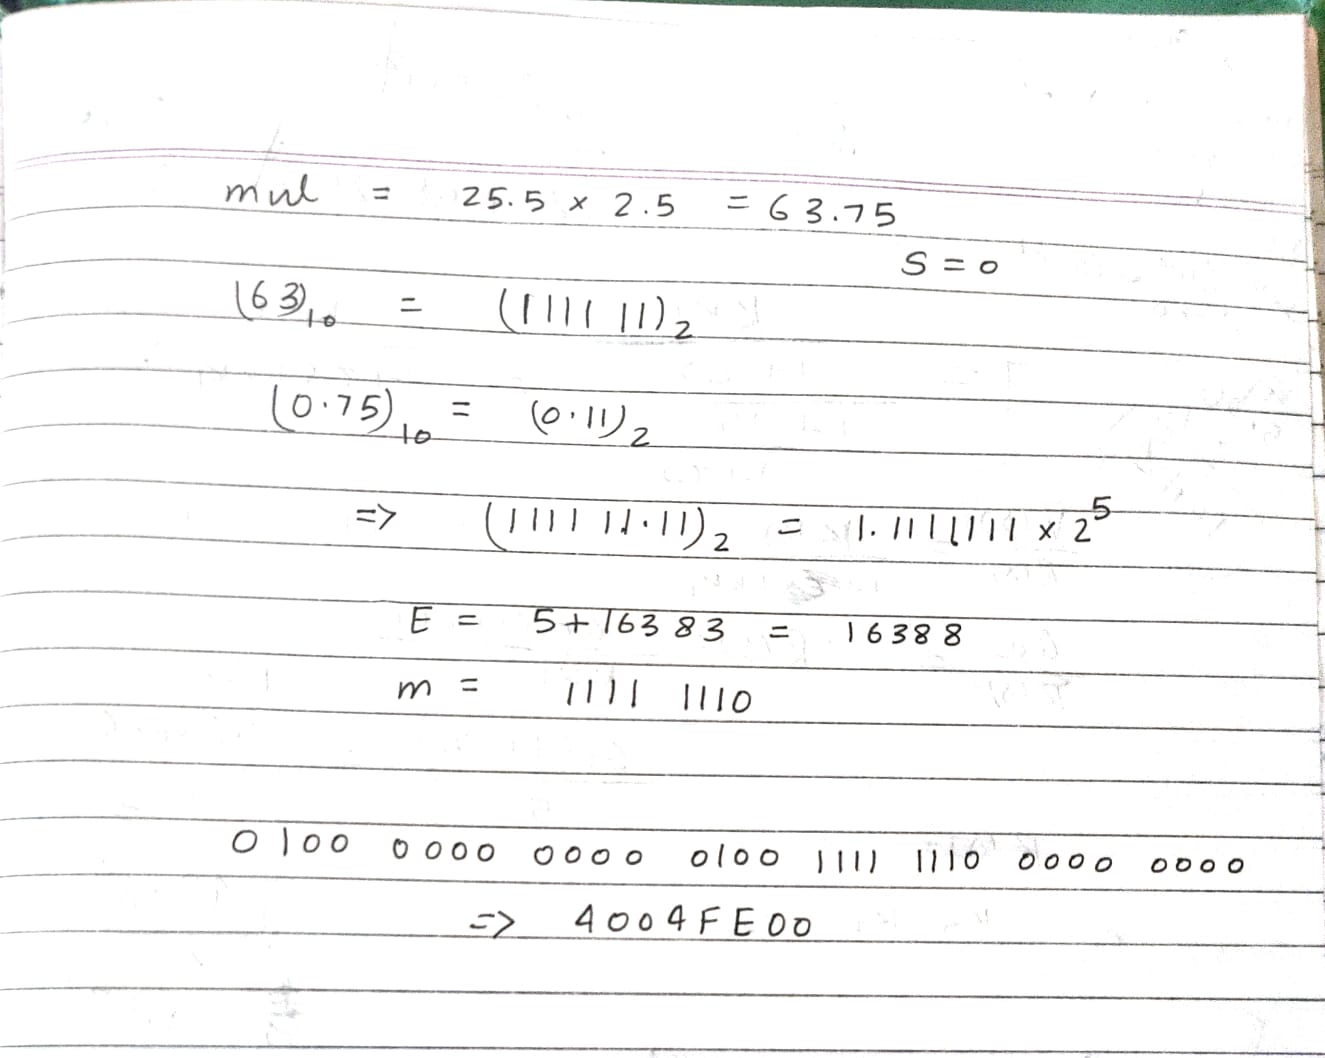 mul = 25.5 × 2.5 = 63.75
S = 0
(63)₁₀ = (111111)₂
(0.75)₁₀ = (0.11)₂
=> (111111.11)₂ = 1.1111111 × 2⁵
E = 5+16383 = 16388
m = 1111 1110
0100 0000 0000 0100 1111 1110 0000 0000
=> 4004FE00